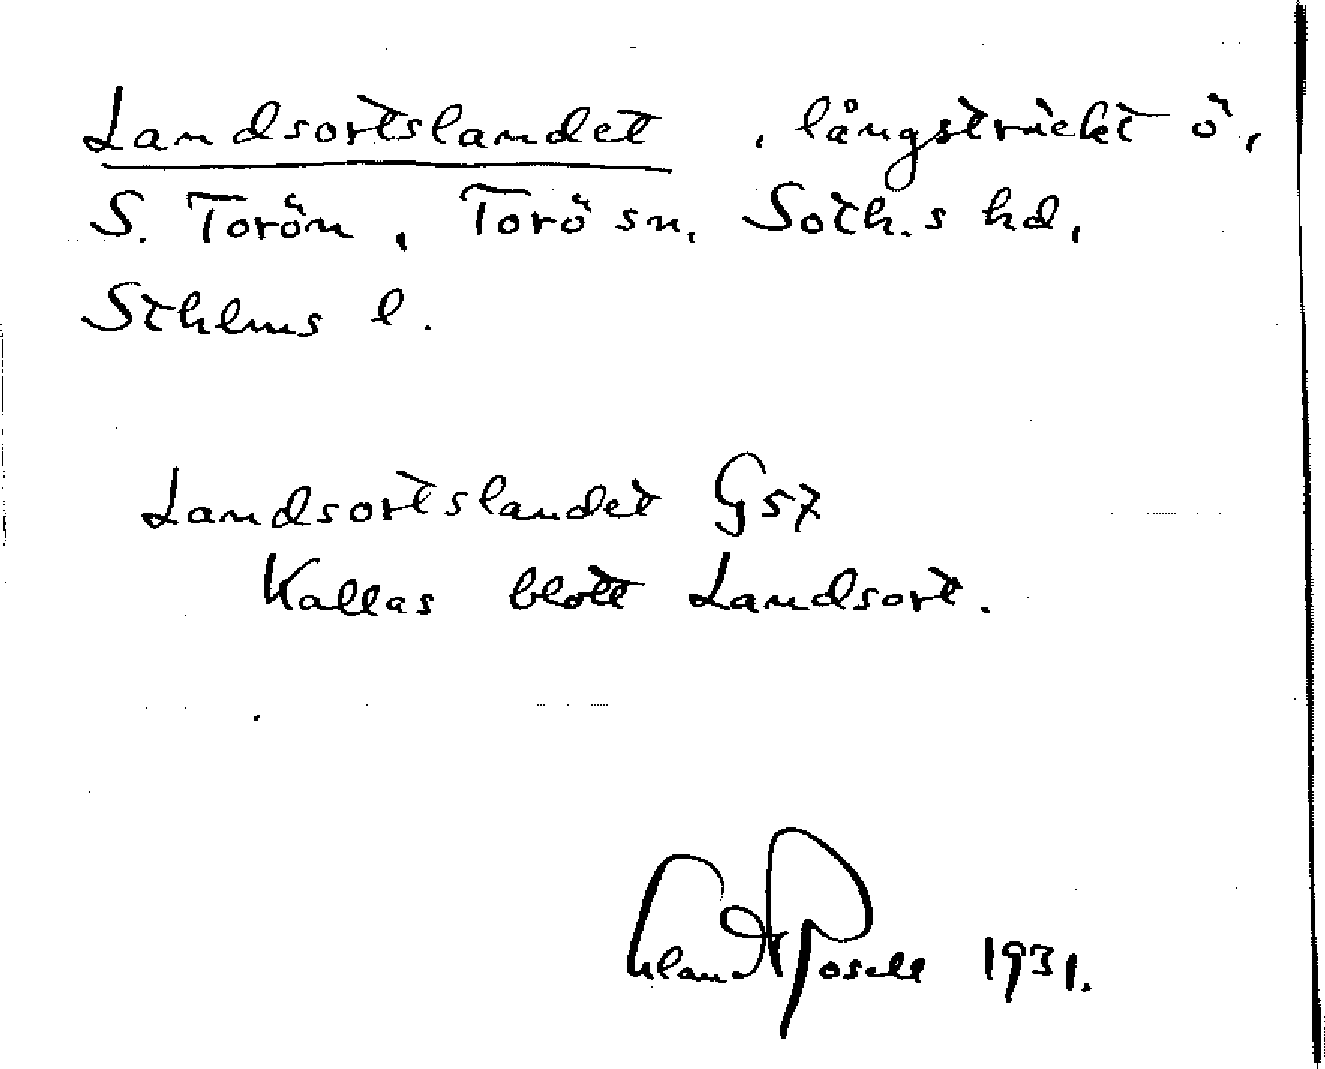 Landsortslandet , långsträckt ö,
S. Torön, Torö sn, Soth.s hd,
Sthlms l.
Landsortslandet G57
Kallas blott Landsort.
Erland Rosell 1931.